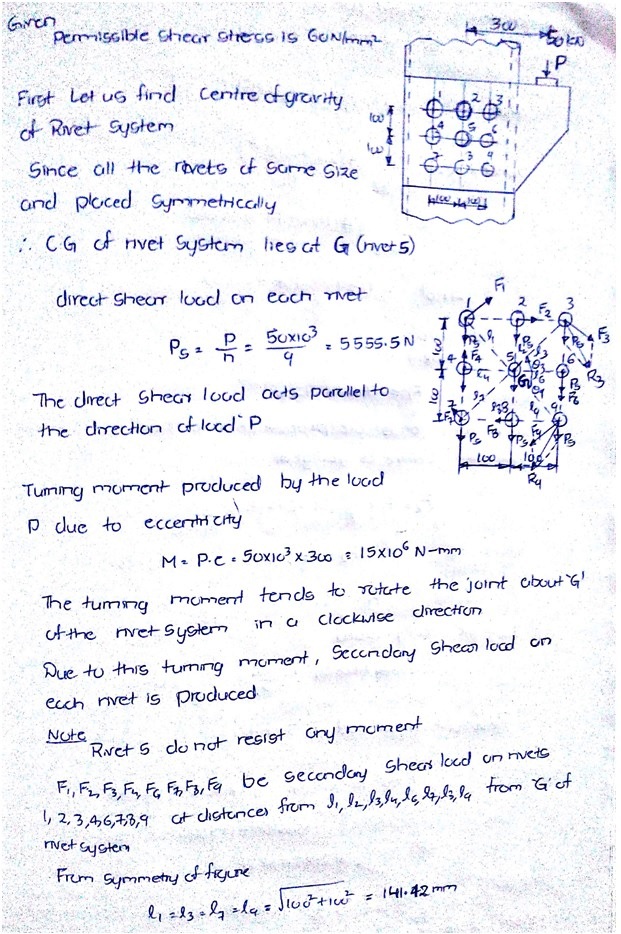 Given
Permissible shear stress is 60N/mm²
300
50 kN
P
First Let us find centre of gravity
of Rivet System
Since all the rivets of same size
and placed symmetrically
∴ CG of rivet system lies at G (rivet 5)
2 3
4 5 6
7 8 9
100
100
100 100
direct shear load on each rivet
Ps = P/n = 50x10³/9 = 5555.5 N
The direct shear load acts parallel to
the direction of load P
F1
1 2 F2 3
F3
R3
100
100
100
R9
Turning moment produced by the load
P due to eccentricity
M = P.e = 50x10³ x 300 = 15x10⁶ N-mm
The turning moment tends to rotate the joint about 'G'
of the rivet system in a clockwise direction
Due to this turning moment, Secondary Shear load on
each rivet is produced
Note Rivet 5 do not resist any moment
F1, F2, F3, F4, F6, F7, F8, F9 be secondary shear load on rivets
1, 2, 3, 4, 6, 7, 8, 9 at distances from l1, l2, l3, l4, l6, l7, l8, l9 from 'G' of
rivet system
From symmetry of figure
l1 = l3 = l7 = l9 = √100²+100² = 141.42 mm